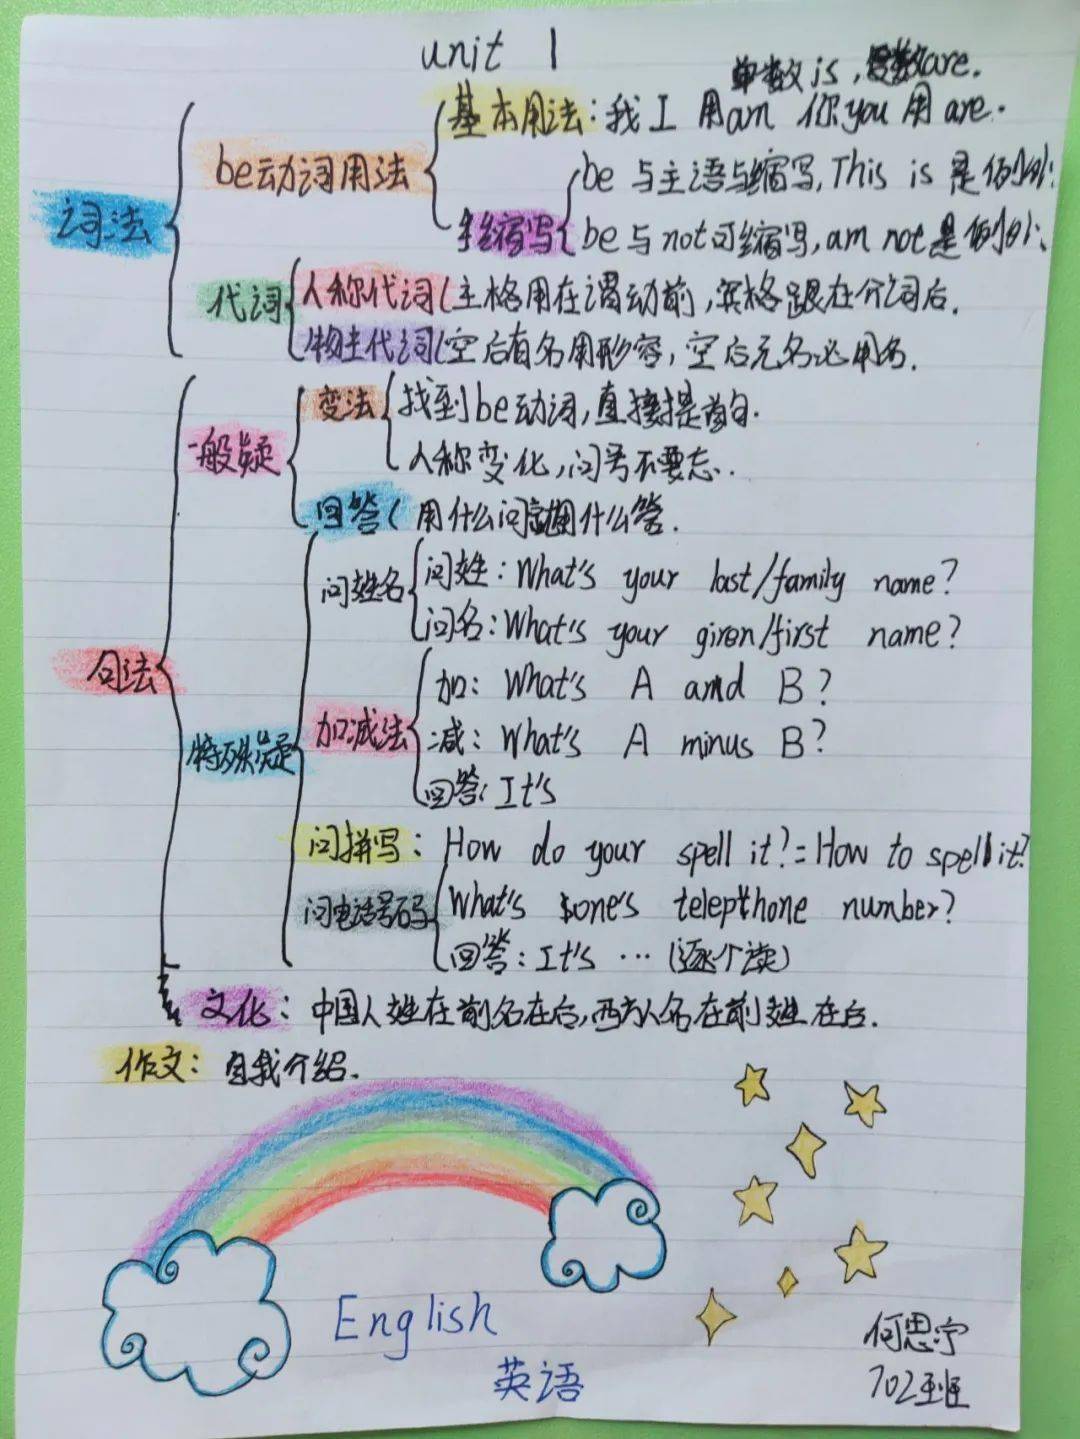 unit 1
单数is,复数are.
基本用法:我 I 用am 你you 用 are.
be动词用法
be 与主语与缩写,This is 是例外;
词法
缩写
be 与 not可缩写,am not 是例外、
代词
人称代词(主格用在谓动前,宾格跟在介词后.
物主代词(空后有名用形容,空后无名必用名.
变法
找到be动词,直接提前句.
一般疑
人称变化,问号不要忘.
回答(用什么问就用什么答.
问姓名
问姓:What's your last/family name?
问名:What's your giren/first name?
句法
加减法
加: What's A amd B?
特殊疑
减: What's A minus B?
回答: It's
问拼写: How do your spell it?=How to spell it?
问电话号码
What's sone's telepthone number?
回答: It's … (逐个读)
文化: 中国人姓在前名在后,西方人名在前姓在后.
作文: 自我介绍.
English
英语
何思宇
702班